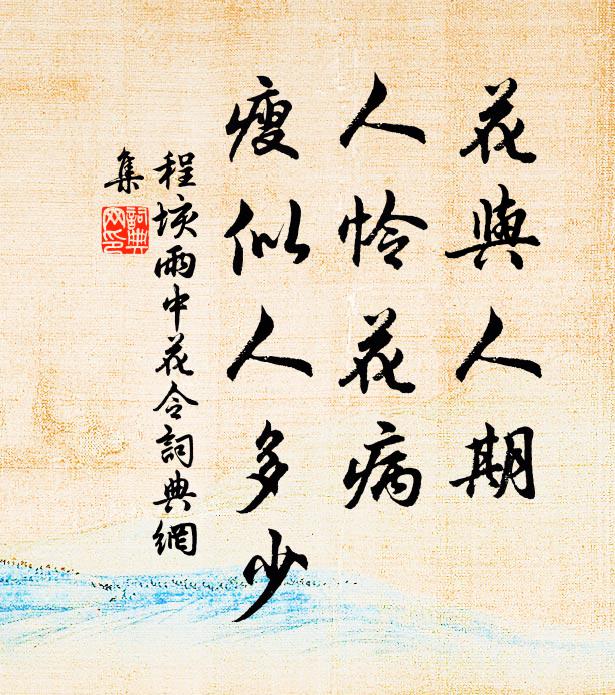 花與人期
人怜花病
瘦似人多少
程垓雨中花令詞典網
集
詞典
网印